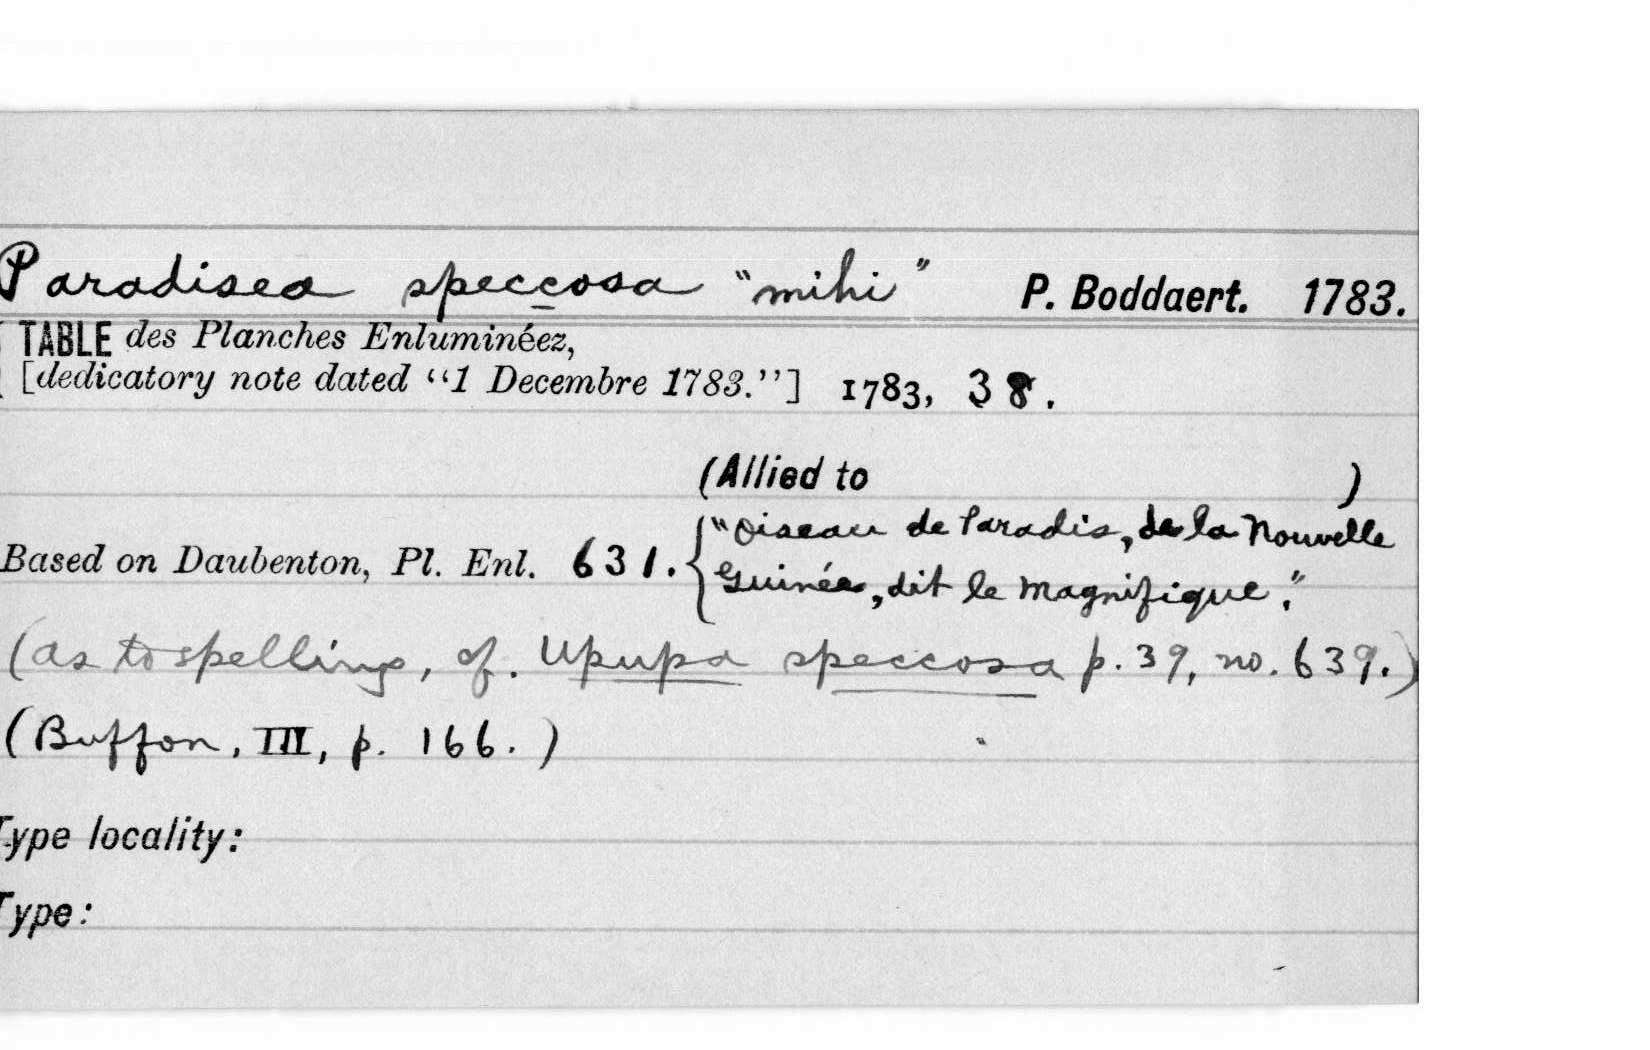 Paradisea speccosa "mihi" P. Boddaert. 1783.
TABLE des Planches Enluminéez,
[dedicatory note dated "1 Decembre 1783."] 1783, 38.
(Allied to )
Based on Daubenton, Pl. Enl. 631. { "Oiseau de Paradis, de la Nouvelle
Guinée, dit le Magnifique."
(as to spelling, cf. Upupa speccosa p. 39, no. 639.)
(Buffon, III, p. 166.)
Type locality:
Type: